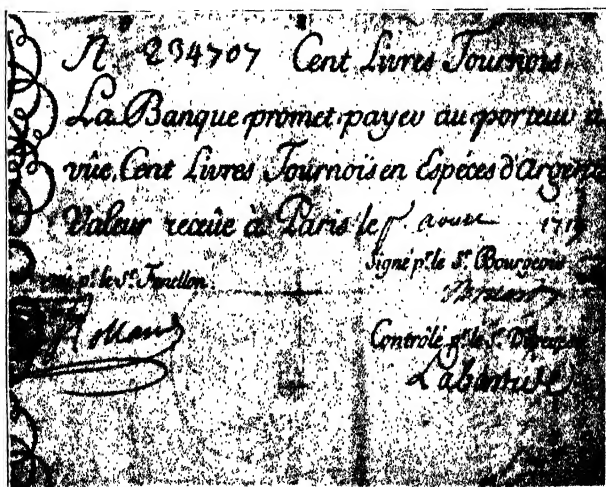 N 234707 Cent Livres Tournois.
La Banque promet payer au porteur a
vüe, Cent Livres Tournois en Espéces d'Argent
Valeur receüe à Paris le 1719
Signé pr. le Sr. Bourgeois
pr. le Sr. Fenellon.
Controlé pr. le Sr.